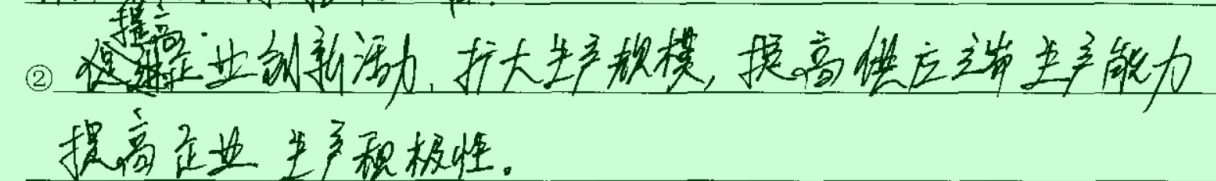 ②提高企业创新活力,扩大生产规模,提高供应端生产能力
提高企业生产积极性。